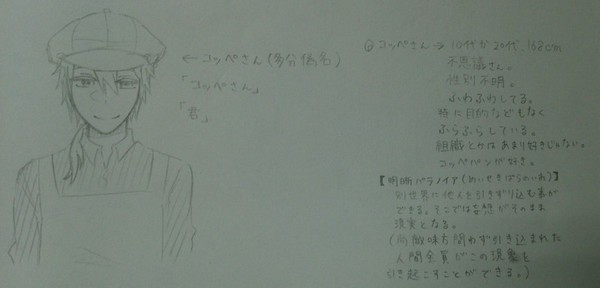 ←コッペさん(多分偽名)
「コッペさん」
「君」
◎コッペさん→10代か20代.168cm
不思議さん。
性別不明。
ふわふわしてる。
特に目的などもなく
ふらふらしている。
組織とかはあまり好きじゃない。
コッペパンが好き。
【明晰パラノイア(めいせきぱらのいあ)】
別世界に他人を引きずり込む事が
できる。そこでは妄想がそのまま
現実となる。
(尚敵味方問わず引き込まれた
人間全員がこの現象を
引き起こすことができる。)